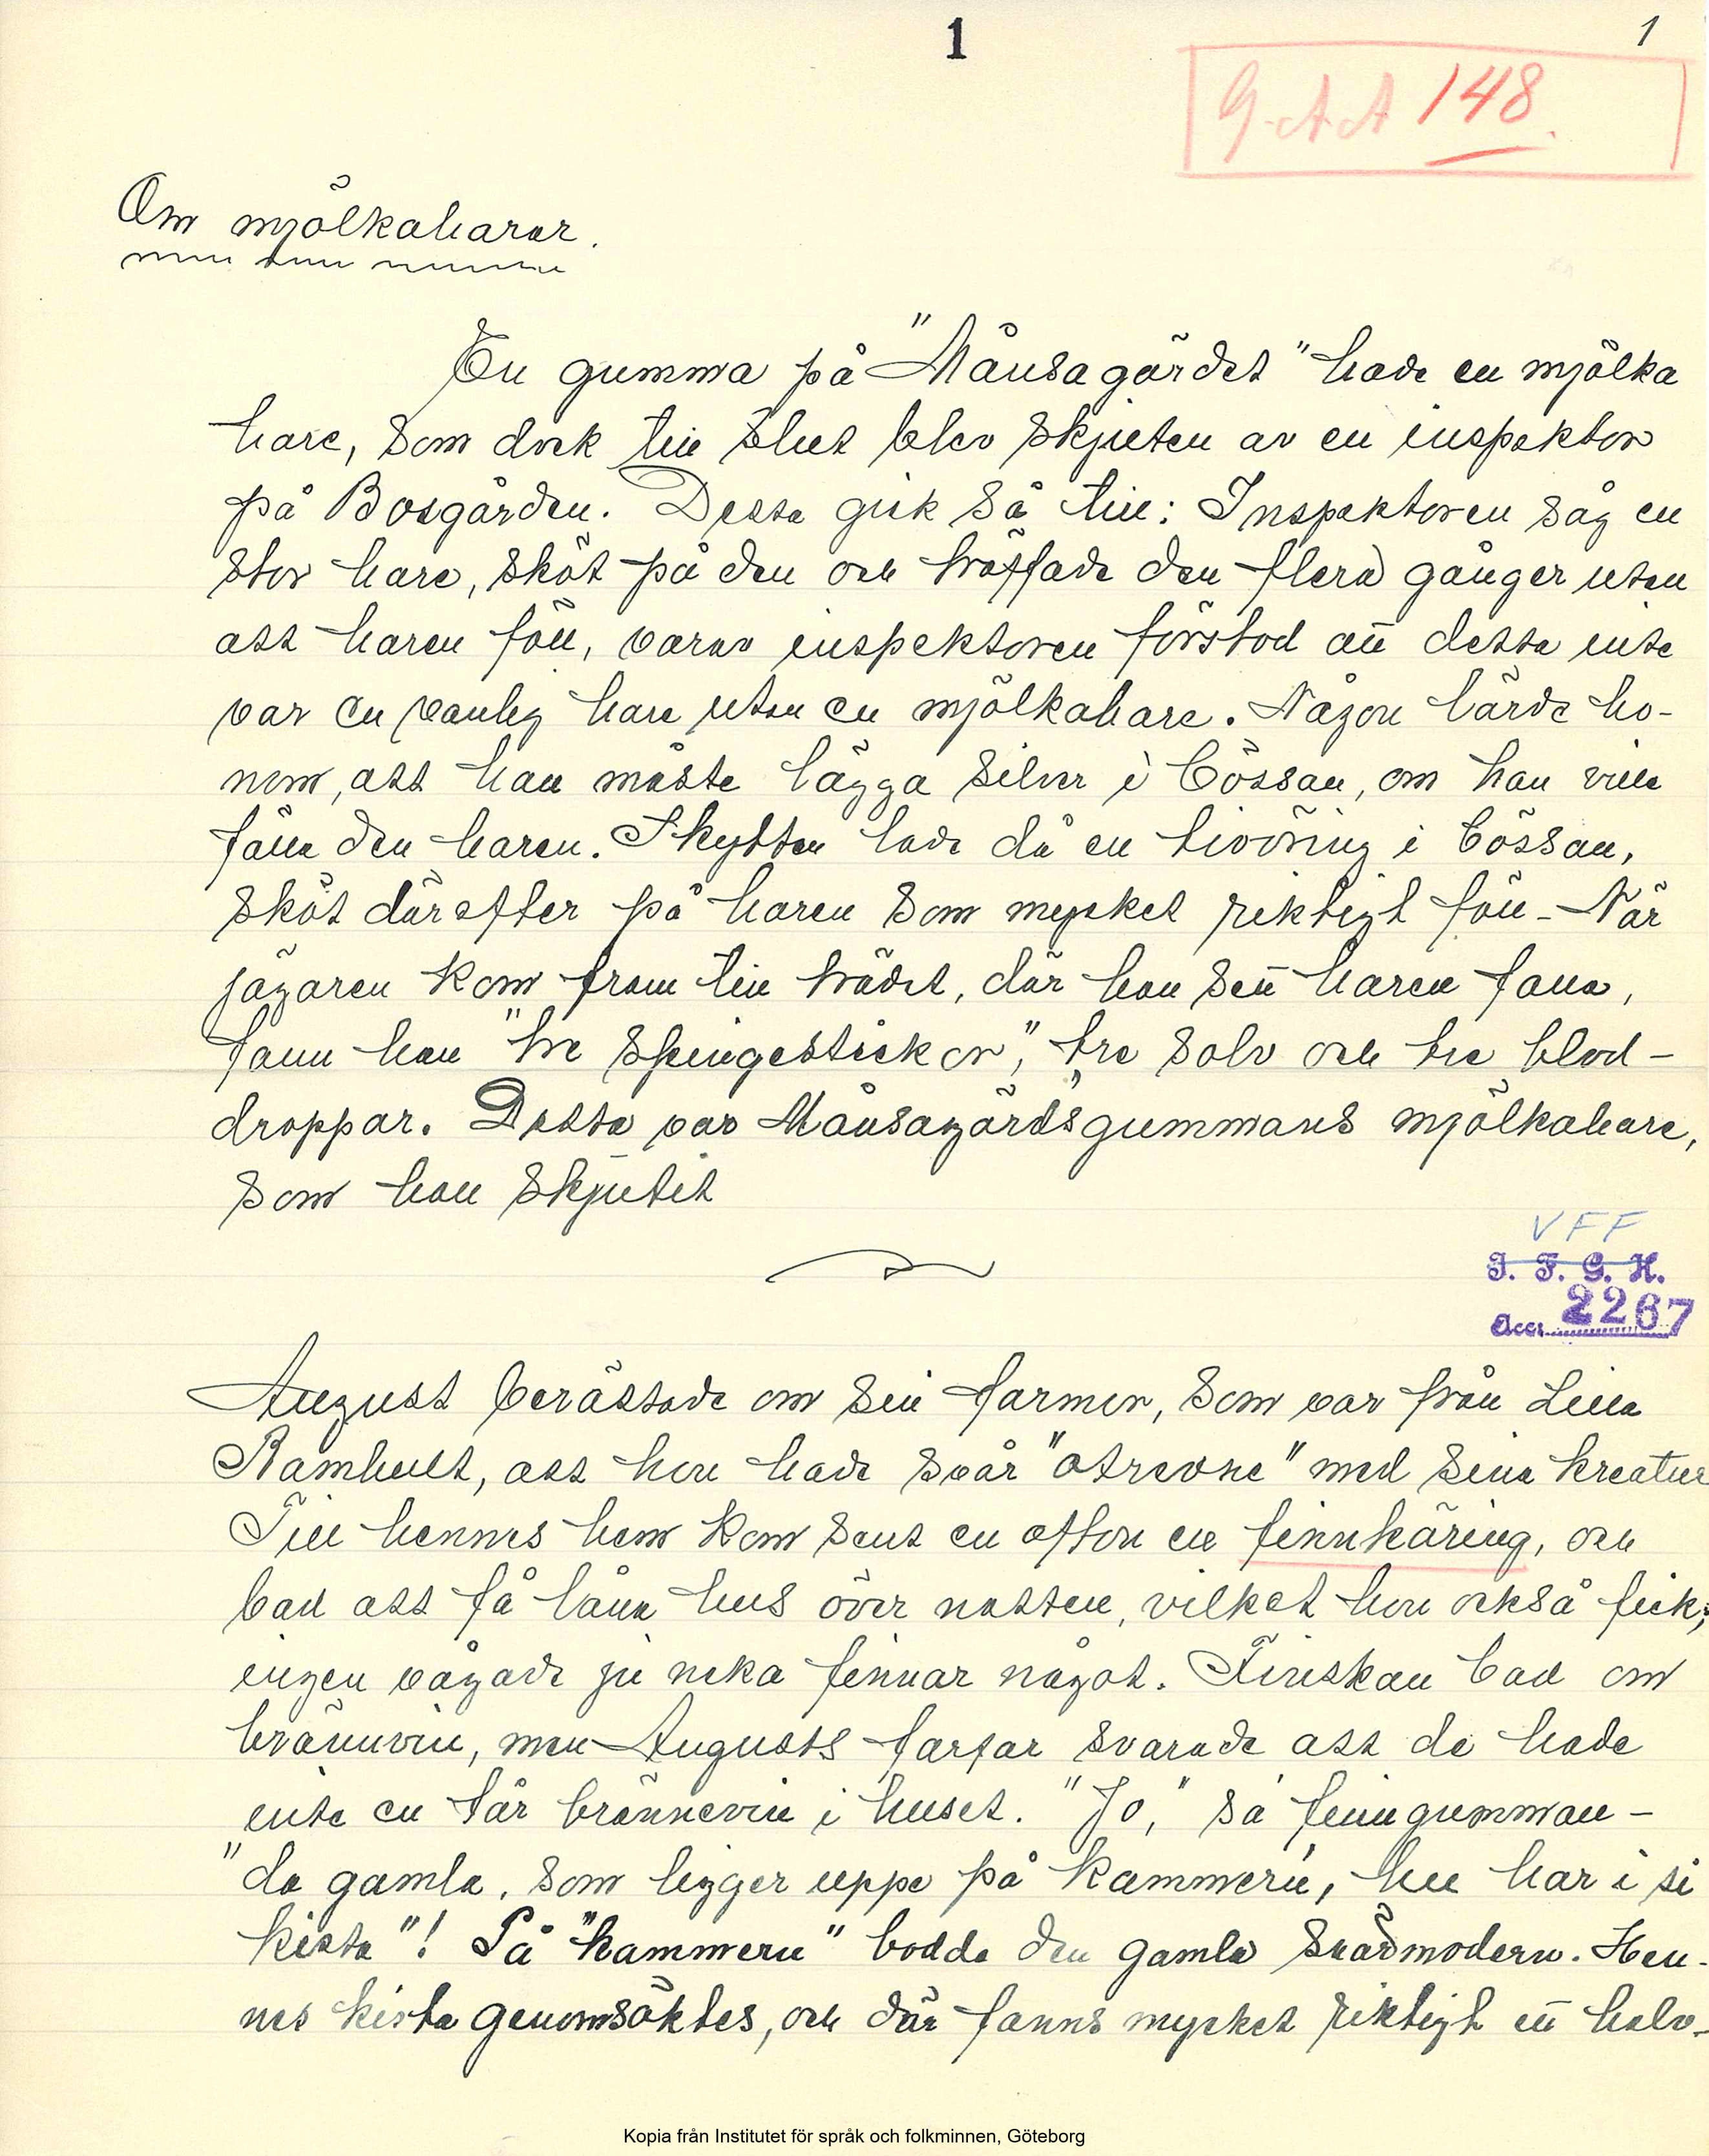 1
1
G.A.A 148.
Om mjölkaharar.
En gumma på "Månsagärdet" hade en mjölka
hare, som dock till slut blev skjuten av en inspektor
på Bosgården. Detta gick så till: Inspektoren såg en
stor hare, sköt på den och träffade den flera gånger utan
att haren föll, varav inspektoren förstod att detta inte
var en vanlig hare utan en mjölkahare. Någon lärde ho-
nom, att han måste lägga silver i bössan, om han ville
fälla den haren. Skytten lade då en tioöring i bössan,
sköt därefter på haren som mycket riktigt föll - När
jägaren kom fram till trädet, där han sett haren falla,
fann han "tre spingestickor", tre solv och tre blod-
droppar. Detta var Månsagärdsgummans mjölkahare,
som han skjutit
VFF
I. F. G. H.
Acc. 2267
August berättade om sin farmor, som var från Lilla
Ramhult, att hon hade svår "otrevne" med sina kreatur
Till hennes hem kom sent en afton en finnkäring, och
bad att få låna hus över natten, vilket hon också fick;
ingen vågade ju neka finnar något. Finskan bad om
brännvin, men Augusts farfar svarade att de hade
inte en tår brännevin i huset. "Jo," sa finngumman -
"da gamla, som ligger uppe på kammern, hu har i si
kista"! På "kammern" bodde den gamla svärmodern. Hen-
nes kista genomsöktes, och där fanns mycket riktigt ett halv-
Kopia från Institutet för språk och folkminnen, Göteborg